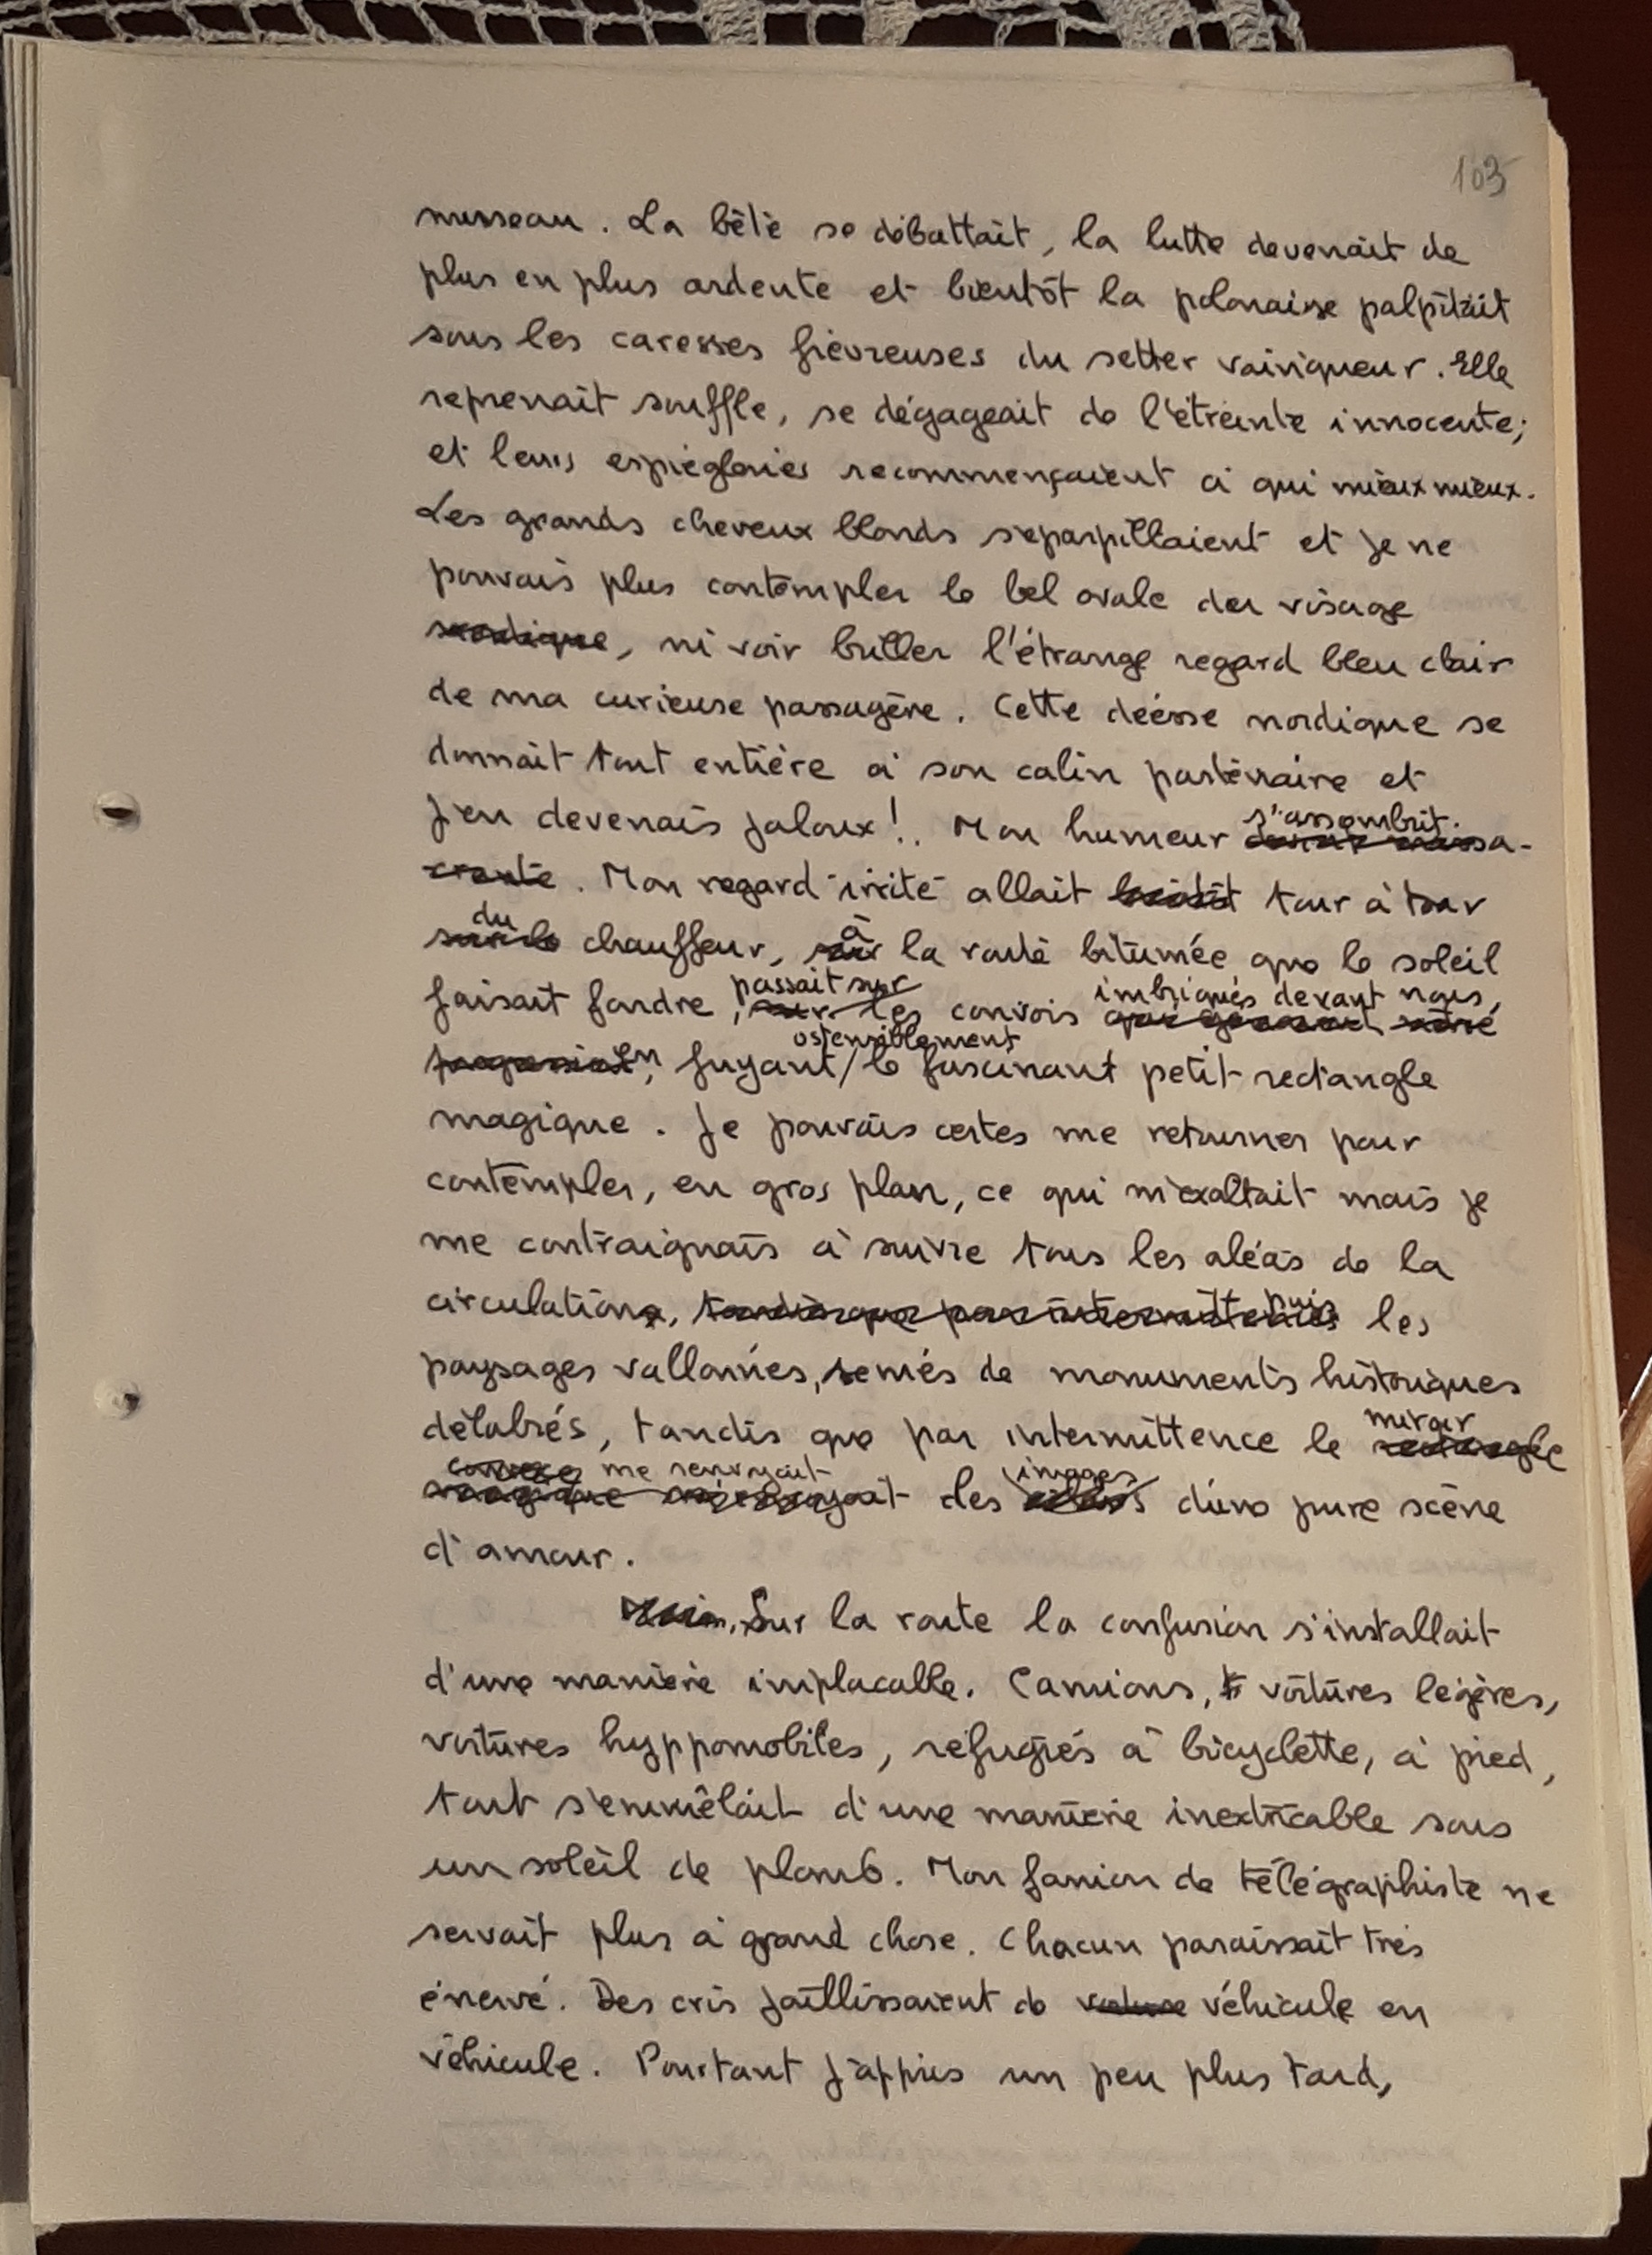 103
museau. La bête se débattait, la lutte devenait de
plus en plus ardente et bientôt la polonaise palpitait
sous les caresses fiévreuses du setter vainqueur. Elle
reprenait souffle, se dégageait de l'étreinte innocente;
et leurs espiègleries recommençaient à qui mieux mieux.
Les grands cheveux blonds s'éparpillaient et je ne
pouvais plus contempler le bel ovale du visage
nordique, ni voir briller l'étrange regard bleu clair
de ma curieuse passagère. Cette déesse nordique se
donnait tout entière à son calin partenaire et
j'en devenais jaloux!. Mon humeur s'assombrit.
devint massa-
crante. Mon regard irrité allait bientôt tour à tour
du
sur le chauffeur, sur à la route bitumée que le soleil
faisait fondre, passait sur
sur les convois imbriqués devant nous,
qui gênaient notre
progression, en fuyant / ostensiblement le fascinant petit rectangle
magique. Je pouvais certes me retourner pour
contempler, en gros plan, ce qui m'exaltait mais je
me contraignais à suivre tous les aléas de la
circulation, tandis que par intermittences puis les
paysages vallonnés, semés de monuments historiques
délabrés, tandis que par intermittence le miroir
rectangle
me renvoyait
magique des images d'une pure scène
d'amour.
Sur la route la confusion s'installait
d'une manière implacable. Camions, voitures légères,
voitures hyppomobiles, réfugiés à bicyclette, à pied,
tout s'emmêlait d'une manière inextricable sous
un soleil de plomb. Mon fanion de télégraphiste ne
servait plus à grand chose. Chacun paraissait très
énervé. Des cris jaillissaient de voiture véhicule en
véhicule. Pourtant j'appris un peu plus tard,